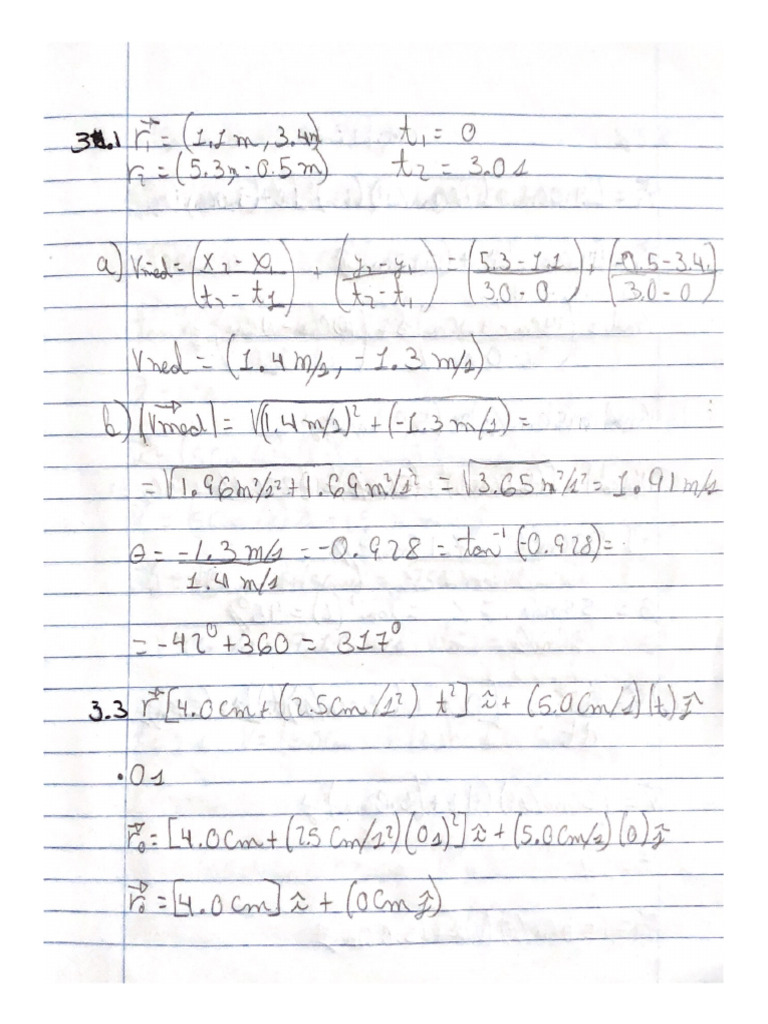 3.1 r⃗₁ = (1.1 m, 3.4m) t₁ = 0
r₂ = (5.3m - 0.5 m) t₂ = 3.0 s
a) Vmed = (x₂ - x₁ / t₂ - t₁), (y₂ - y₁ / t₂ - t₁) = (5.3 - 1.1 / 3.0 - 0), (-0.5 - 3.4 / 3.0 - 0)
Vmed = (1.4 m/s, -1.3 m/s)
b) |V⃗med| = √(1.4 m/s)² + (-1.3 m/s) =
= √1.96m²/s² + 1.69 m²/s² = √3.65 m²/s² = 1.91 m/s
θ = -1.3 m/s / 1.4 m/s = -0.928 = tan⁻¹ (-0.928) =
= -42° + 360 = 317°
3.3 r⃗ [4.0 cm + (2.5 cm/s²) t²] î + (5.0 cm/s) (t) ĵ
• 0 s
r⃗₀ = [4.0 cm + (2.5 cm/s²) (0 s)²] î + (5.0 cm/s) (0) ĵ
r⃗₀ = [4.0 cm] î + (0 cm ĵ)